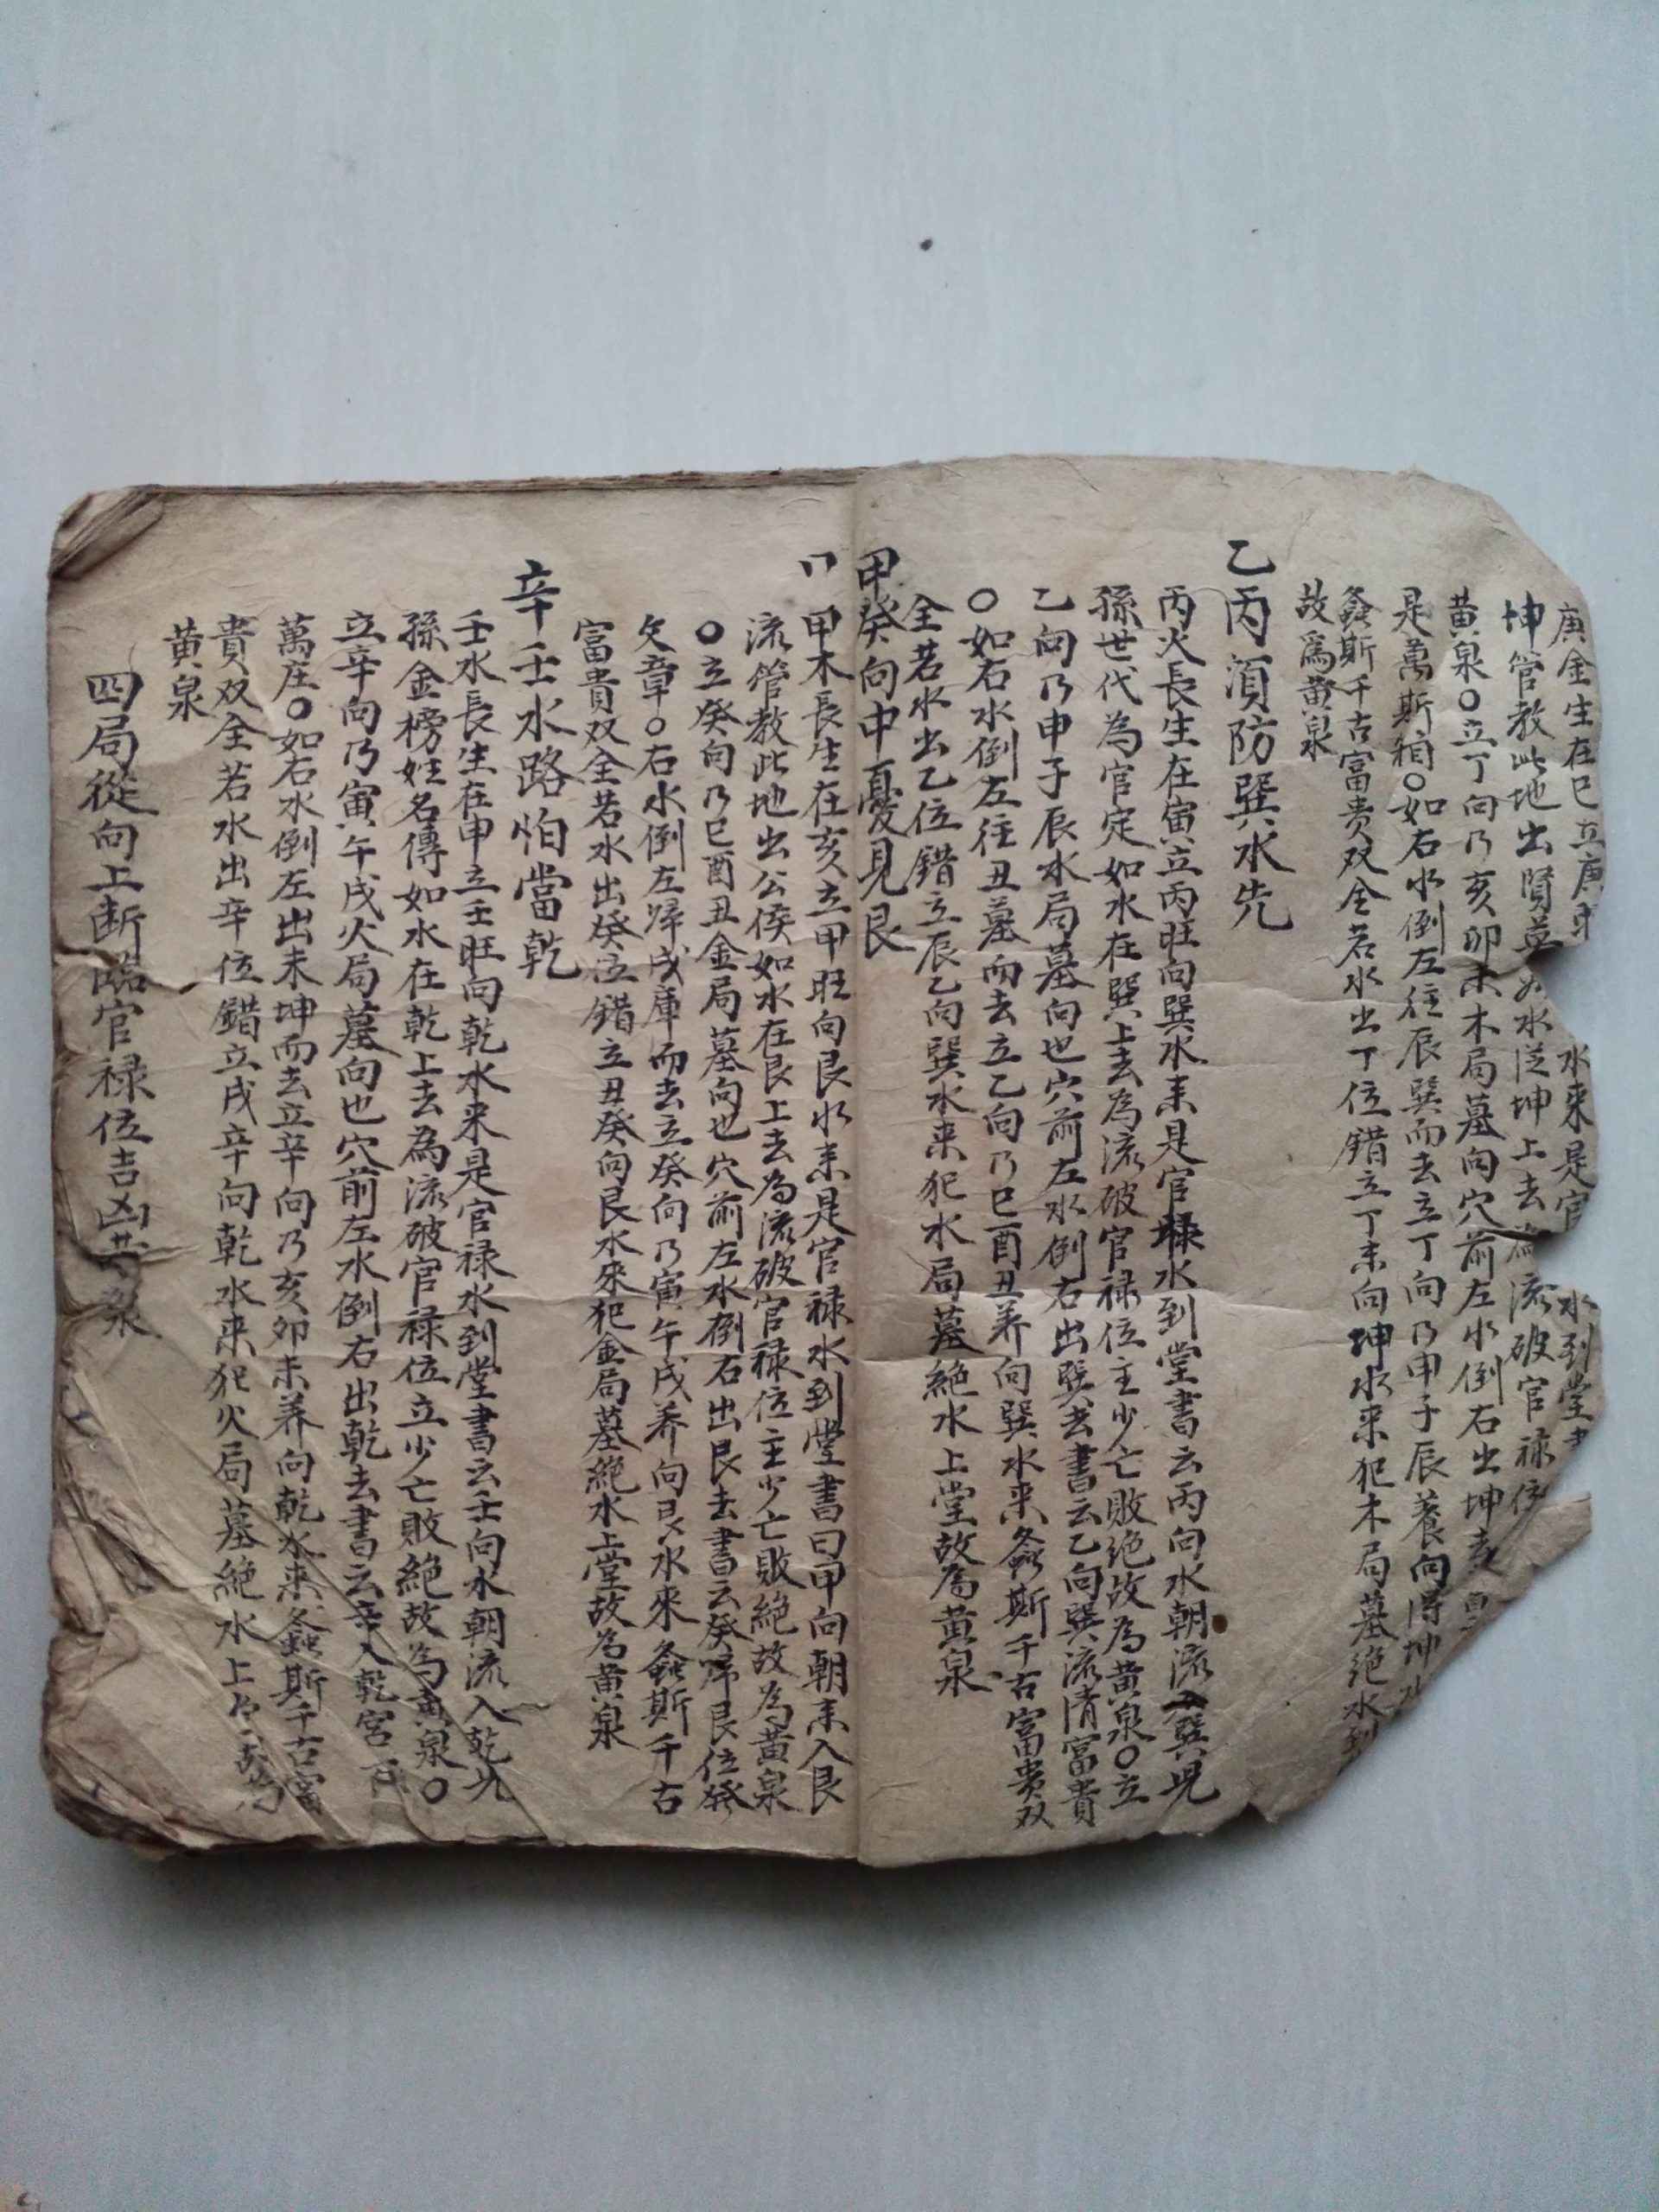 庚金生在巳立庚 水來是官 水到堂書
坤管教此地出賢 如水從坤上去為流破官祿位
黃泉○立丁向乃亥卯未木局墓向穴前左水倒右出坤去
是萬斯箱○如右水倒左往辰巽而去立丁向乃申子辰養向得坤水
螽斯千古富贵双全若水出丁位錯立丁未向坤水来犯木局墓绝水到
故為黄泉
乙丙須防巽水先
丙火長生在寅立丙旺向巽水来是官祿水到堂書云丙向水朝流入巽兒
孫世代為官定如水在巽上去為流破官禄位主少亡敗绝故為黄泉○立
乙向乃申子辰水局墓向也穴前左水倒右出巽去書云乙向巽流清富貴
○如右水倒左往丑墓而去立乙向乃巳酉丑养向巽水来螽斯千古富贵双
全若水出乙位錯立辰乙向巽水来犯水局墓絶水上堂故為黄泉
甲癸向中憂見艮
甲木長生在亥立甲旺向艮水来是官禄水到堂書曰甲向朝来入艮
流管教此地出公侯如水在艮上去為流破官禄位主少亡敗絶故為黃泉
○立癸向乃巳酉丑金局墓向也穴前左水倒右出艮去書云癸歸艮位發
文章○右水倒左歸戌庫而去立癸向乃寅午戌养向艮水來螽斯千古
富貴双全若水出癸位錯立丑癸向艮水來犯金局墓絶水上堂故為黄泉
辛壬水路怕當乾
壬水長生在申立壬旺向乾水来是官禄水到堂書云壬向水朝流入乾九
孫金榜姓名傳如水在乾上去為流破官禄位立少亡敗絶故為黄泉○
立辛向乃寅午戌火局墓向也穴前左水倒右出乾去書云辛入乾宮百
萬庄○如右水倒左出未坤而去立辛向乃亥卯未养向乾水来螽斯千古富
貴双全若水出辛位錯立戌辛向乾水来犯火局墓絶水上堂故為
黄泉
四局從向上断臨官禄位吉凶黄泉